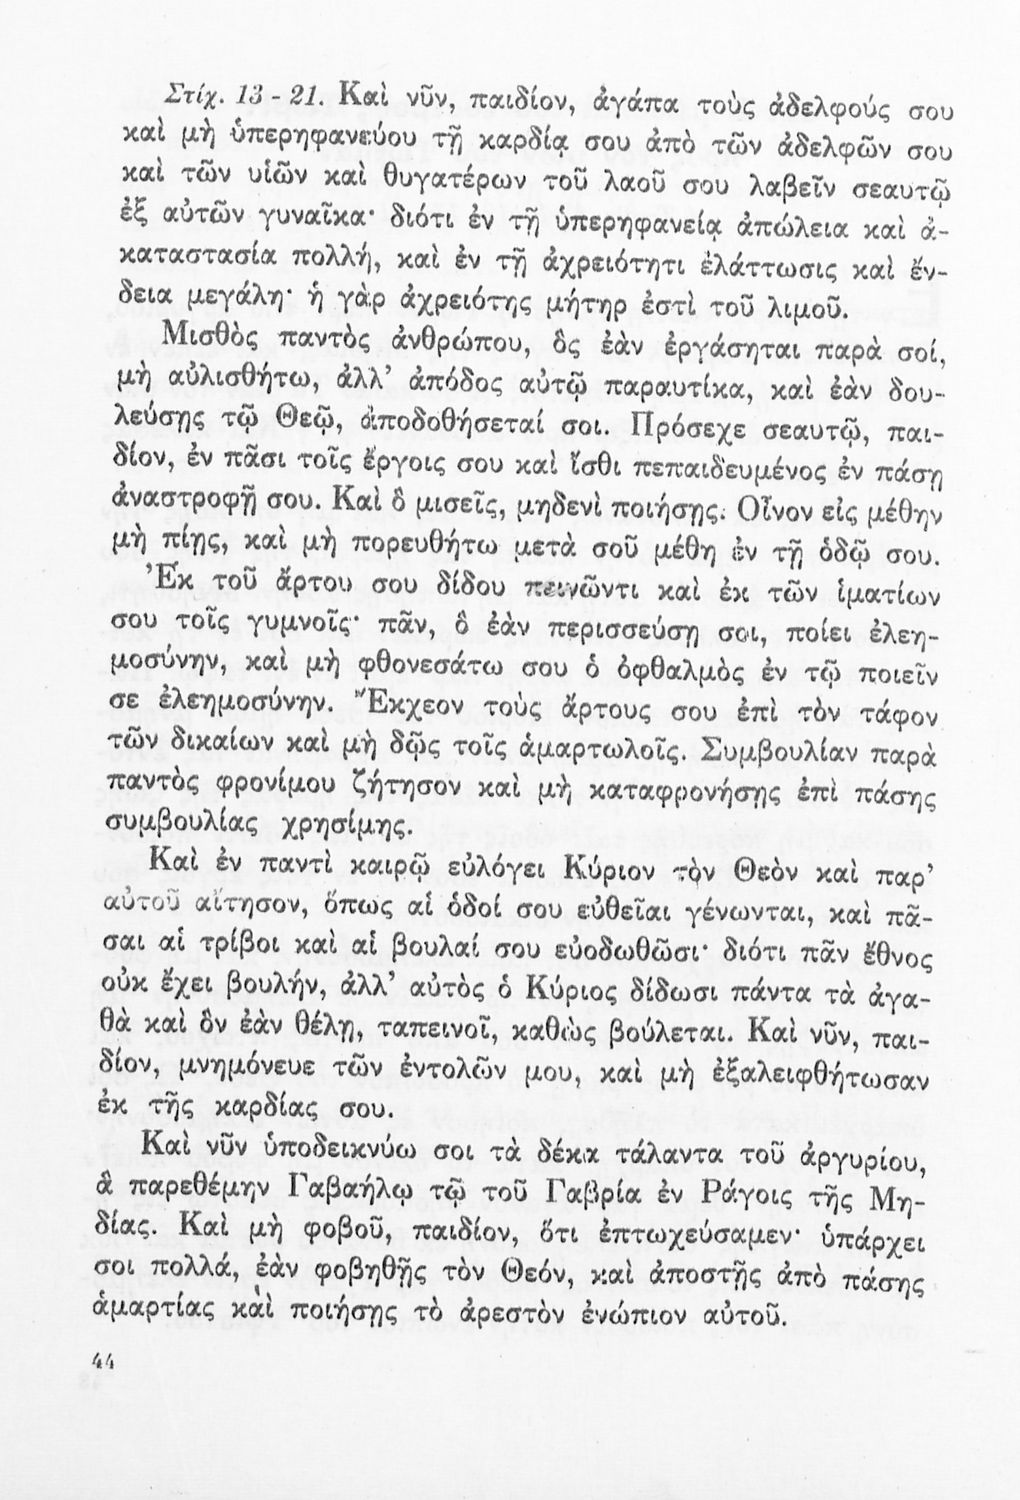 Στίχ. 13 - 21. Καὶ νῦν, παιδίον, ἀγάπα τοὺς ἀδελφούς σου
καὶ μὴ ὑπερηφανεύου τῇ καρδίᾳ σου ἀπὸ τῶν ἀδελφῶν σου
καὶ τῶν υἱῶν καὶ θυγατέρων τοῦ λαοῦ σου λαβεῖν σεαυτῷ
ἐξ αὐτῶν γυναῖκα· διότι ἐν τῇ ὑπερηφανείᾳ ἀπώλεια καὶ ἀ-
καταστασία πολλή, καὶ ἐν τῇ ἀχρειότητι ἐλάττωσις καὶ ἔν-
δεια μεγάλη· ἡ γὰρ ἀχρειότης μήτηρ ἐστὶ τοῦ λιμοῦ.
Μισθὸς παντὸς ἀνθρώπου, ὃς ἐὰν ἐργάσηται παρὰ σοί,
μὴ αὐλισθήτω, ἀλλ’ ἀπόδος αὐτῷ παραυτίκα, καὶ ἐὰν δου-
λεύσῃς τῷ Θεῷ, ἀποδοθήσεταί σοι. Πρόσεχε σεαυτῷ, παι-
δίον, ἐν πᾶσι τοῖς ἔργοις σου καὶ ἴσθι πεπαιδευμένος ἐν πάσῃ
ἀναστροφῇ σου. Καὶ ὃ μισεῖς, μηδενὶ ποιήσῃς. Οἶνον εἰς μέθην
μὴ πίῃς, καὶ μὴ πορευθήτω μετὰ σοῦ μέθη ἐν τῇ ὁδῷ σου.
Ἐκ τοῦ ἄρτου σου δίδου πεινῶντι καὶ ἐκ τῶν ἱματίων
σου τοῖς γυμνοῖς· πᾶν, ὃ ἐὰν περισσεύσῃ σοι, ποίει ἐλεη-
μοσύνην, καὶ μὴ φθονεσάτω σου ὁ ὀφθαλμὸς ἐν τῷ ποιεῖν
σε ἐλεημοσύνην. Ἔκχεον τοὺς ἄρτους σου ἐπὶ τὸν τάφον
τῶν δικαίων καὶ μὴ δῷς τοῖς ἁμαρτωλοῖς. Συμβουλίαν παρὰ
παντὸς φρονίμου ζήτησον καὶ μὴ καταφρονήσῃς ἐπὶ πάσης
συμβουλίας χρησίμης.
Καὶ ἐν παντὶ καιρῷ εὐλόγει Κύριον τὸν Θεὸν καὶ παρ’
αὐτοῦ αἴτησον, ὅπως αἱ ὁδοί σου εὐθεῖαι γένωνται, καὶ πᾶ-
σαι αἱ τρίβοι καὶ αἱ βουλαί σου εὐοδωθῶσι· διότι πᾶν ἔθνος
οὐκ ἔχει βουλήν, ἀλλ’ αὐτὸς ὁ Κύριος δίδωσι πάντα τὰ ἀγα-
θὰ καὶ ὃν ἐὰν θέλῃ, ταπεινοῖ, καθὼς βούλεται. Καὶ νῦν, παι-
δίον, μνημόνευε τῶν ἐντολῶν μου, καὶ μὴ ἐξαλειφθήτωσαν
ἐκ τῆς καρδίας σου.
Καὶ νῦν ὑποδεικνύω σοι τὰ δέκα τάλαντα τοῦ ἀργυρίου,
ἃ παρεθέμην Γαβαήλῳ τῷ τοῦ Γαβρία ἐν Ράγοις τῆς Μη-
δίας. Καὶ μὴ φοβοῦ, παιδίον, ὅτι ἐπτωχεύσαμεν· ὑπάρχει
σοι πολλά, ἐὰν φοβηθῇς τὸν Θεόν, καὶ ἀποστῇς ἀπὸ πάσης
ἁμαρτίας καὶ ποιήσῃς τὸ ἀρεστὸν ἐνώπιον αὐτοῦ.
44